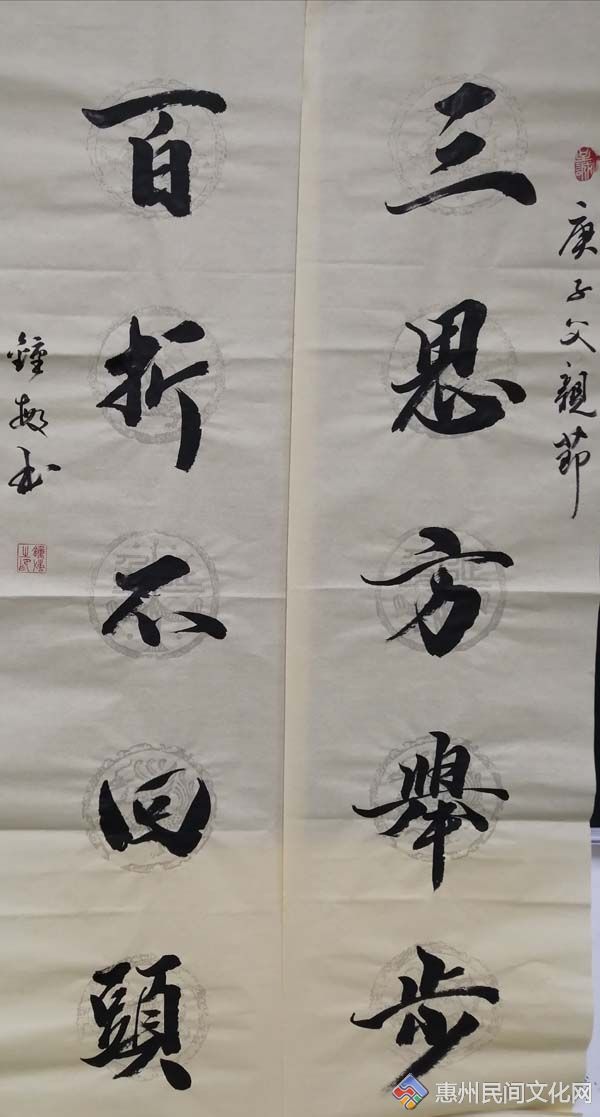 庚子父親節
三思方舉步
百折不回頭
惠州民间文化网